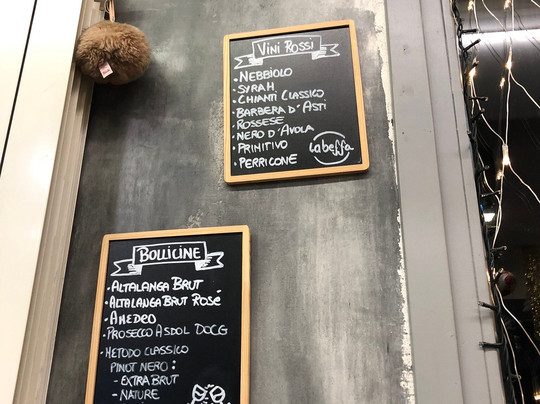 VINI ROSSI
• NEBBIOLO
• SYRAH
• CHIANTI CLASSICO
• BARBERA D'ASTI
• ROSSESE
• NERO D'AVOLA
• PRIMITIVO
• PERRICONE
Labeffa
BOLLICINE
• ALTALANGA BRUT
• ALTALANGA BRUT ROSÉ
• AMEDEO
• PROSECCO ASOLO DOCG
• METODO CLASSICO
PINOT NERO:
- EXTRA BRUT
- NATURE